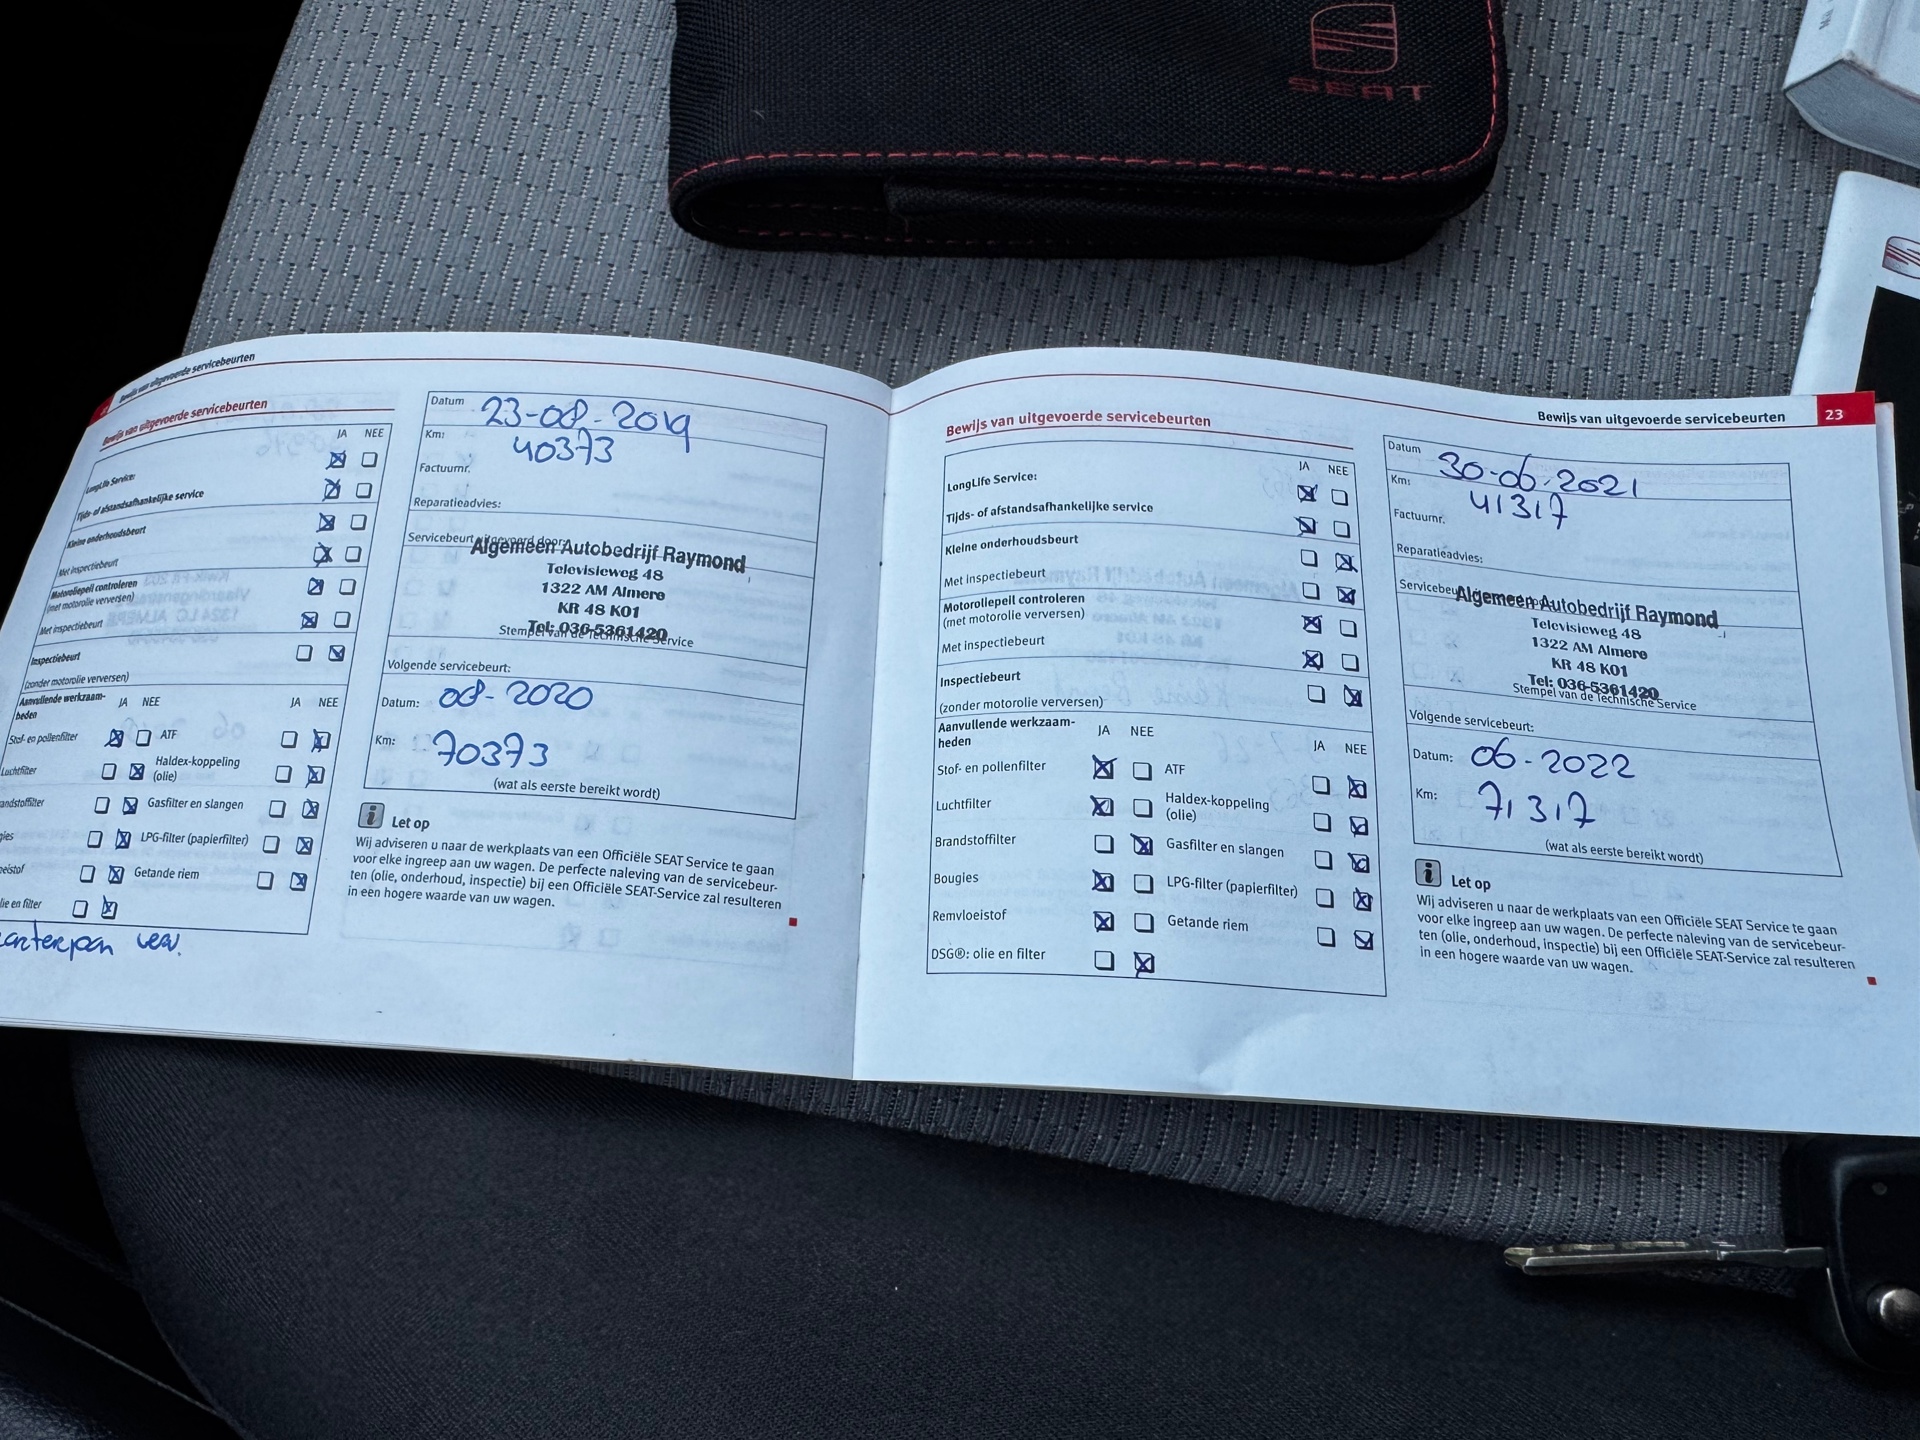 SEAT
Bewijs van uitgevoerde servicebeurten
Bewijs van uitgevoerde servicebeurten
JA NEE
LongLife Service:
Tijds- of afstandsafhankelijke service
Kleine onderhoudsbeurt
Met inspectiebeurt
Motoroliepeil controleren
(met motorolie verversen)
Met inspectiebeurt
Inspectiebeurt
(zonder motorolie verversen)
Aanvullende werkzaam-
heden
JA NEE
JA NEE
Stof- en pollenfilter
ATF
Luchtfilter
Haldex-koppeling
(olie)
Gasfilter en slangen
LPG-filter (papierfilter)
Getande riem
en filter
Datum 23-08-2019
Km: 40373
Factuurnr.
Reparatieadvies:
Servicebeurt uitgevoerd door:
Algemeen Autobedrijf Raymond
Televisieweg 48
1322 AM Almere
KR 48 K01
Tel: 036-5361420
Stempel van de Technische Service
Volgende servicebeurt:
Datum: 08-2020
Km: 70373
(wat als eerste bereikt wordt)
i Let op
Wij adviseren u naar de werkplaats van een Officiële SEAT Service te gaan
voor elke ingreep aan uw wagen. De perfecte naleving van de servicebeur-
ten (olie, onderhoud, inspectie) bij een Officiële SEAT-Service zal resulteren
in een hogere waarde van uw wagen.
Bewijs van uitgevoerde servicebeurten 23
Bewijs van uitgevoerde servicebeurten
JA NEE
LongLife Service:
Tijds- of afstandsafhankelijke service
Kleine onderhoudsbeurt
Met inspectiebeurt
Motoroliepeil controleren
(met motorolie verversen)
Met inspectiebeurt
Inspectiebeurt
(zonder motorolie verversen)
Aanvullende werkzaam-
heden
JA NEE
JA NEE
Stof- en pollenfilter
ATF
Luchtfilter
Haldex-koppeling
(olie)
Brandstoffilter
Gasfilter en slangen
Bougies
LPG-filter (papierfilter)
Remvloeistof
Getande riem
DSG®: olie en filter
Datum 30-06-2021
Km: 41317
Factuurnr.
Reparatieadvies:
Algemeen Autobedrijf Raymond
Televisieweg 48
1322 AM Almere
KR 48 K01
Tel: 036-5361420
Stempel van de Technische Service
Volgende servicebeurt:
Datum: 06-2022
Km: 71317
(wat als eerste bereikt wordt)
i Let op
Wij adviseren u naar de werkplaats van een Officiële SEAT Service te gaan
voor elke ingreep aan uw wagen. De perfecte naleving van de servicebeur-
ten (olie, onderhoud, inspectie) bij een Officiële SEAT-Service zal resulteren
in een hogere waarde van uw wagen.